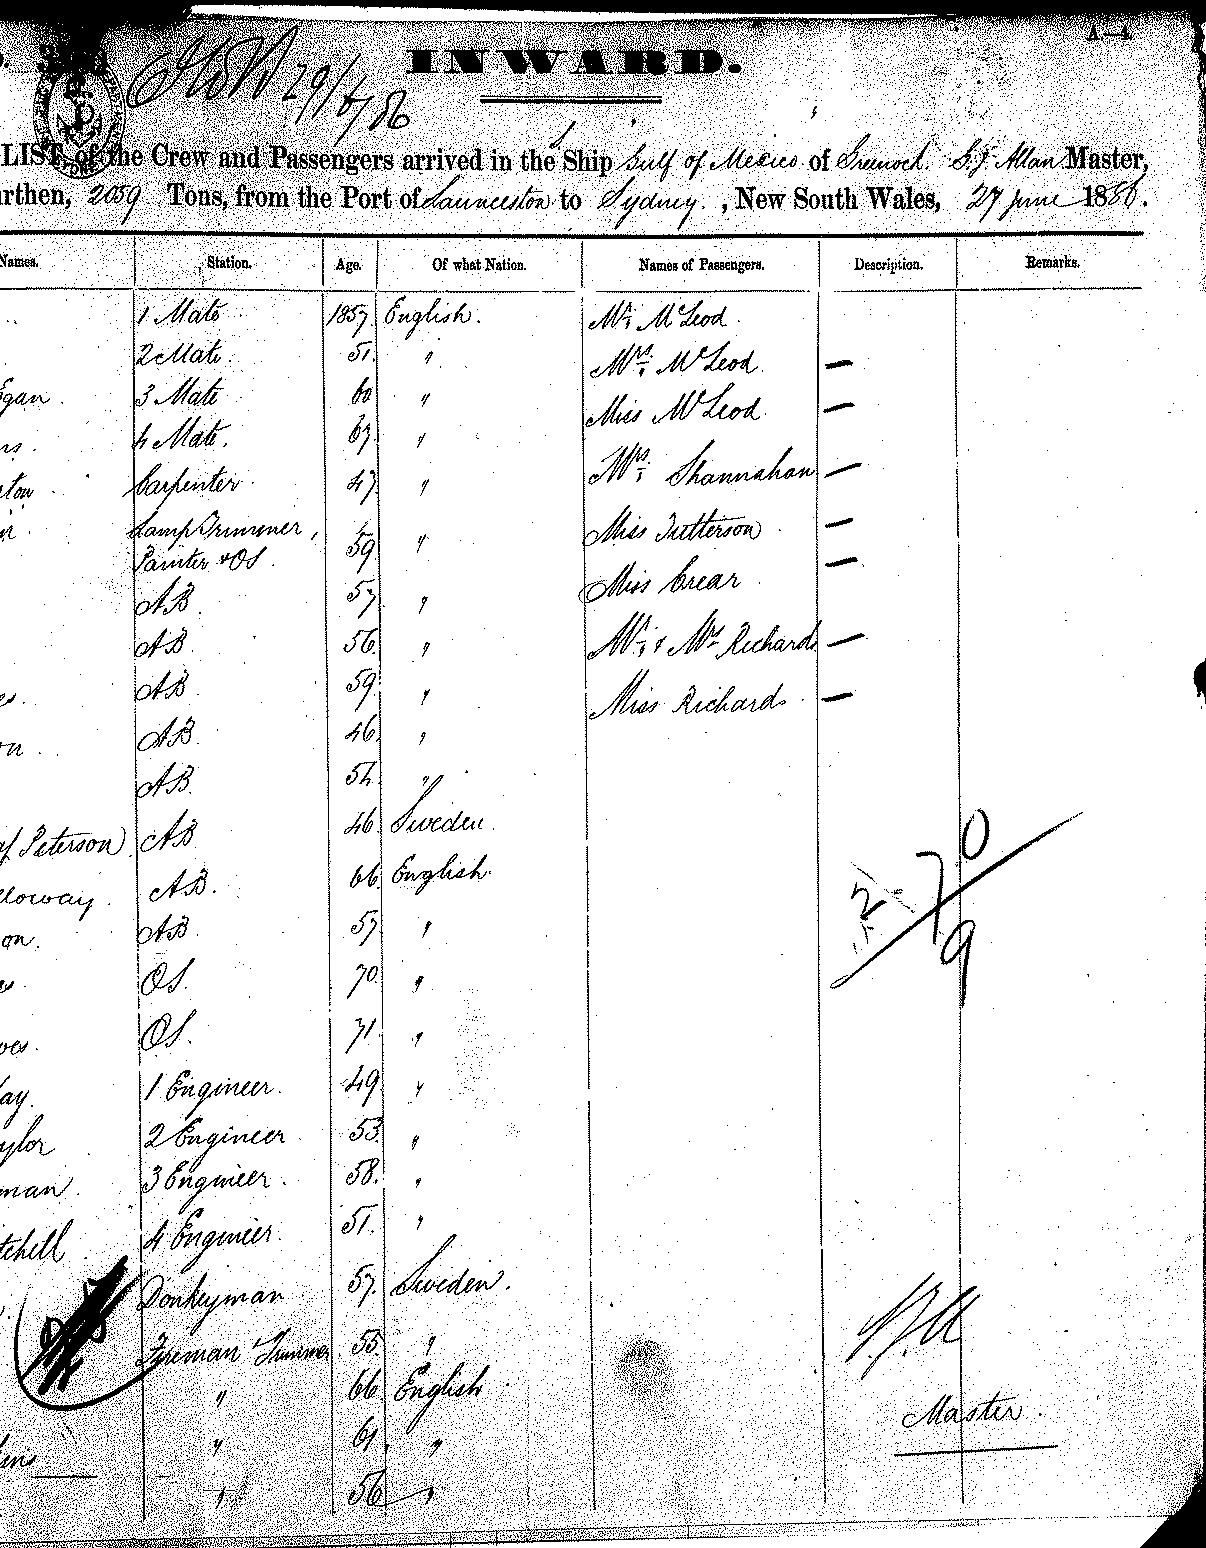 INWARD.
29/6/86
LIST, of the Crew and Passengers arrived in the Ship Gulf of Mexico of Greenock. S. J. Allan Master,
rthen, 2059 Tons, from the Port of Launceston to Sydney. , New South Wales, 27 June 1886.
Names. Station. Age. Of what Nation. Names of Passengers. Description. Remarks.
1 Mate 1857 English. Mr. McLeod.
2 Mate. 51 " Mrs. McLeod —
Egan. 3 Mate 60 " Miss McLeod. —
rs. 4 Mate. 67 "
ston Carpenter 47 " Mrs. Shannahan —
Lamp Trimmer, Miss Tutterson —
Painter & OS. 59 "
AB. 57 " Miss Crear —
AB. 56. " Mr. & Mrs Richards —
es. AB. 59 " Miss Richards —
on. AB. 46. "
AB. 54. "
af Peterson AB 46. Sweden.
lloway. AB. 66 English.
on. AB. 57 "
OS. 70 "
oes. OS. 71. "
ay. 1 Engineer. 49 "
aylor 2 Engineer 53 "
man. 3 Engineer. 58. "
tchell 4 Engineer. 51. "
Donkeyman 57. Sweden.
Fireman Trimmer 55. "
" 66 English
" 61. "
" 56 "
2 70
9
S.J.A
Master.